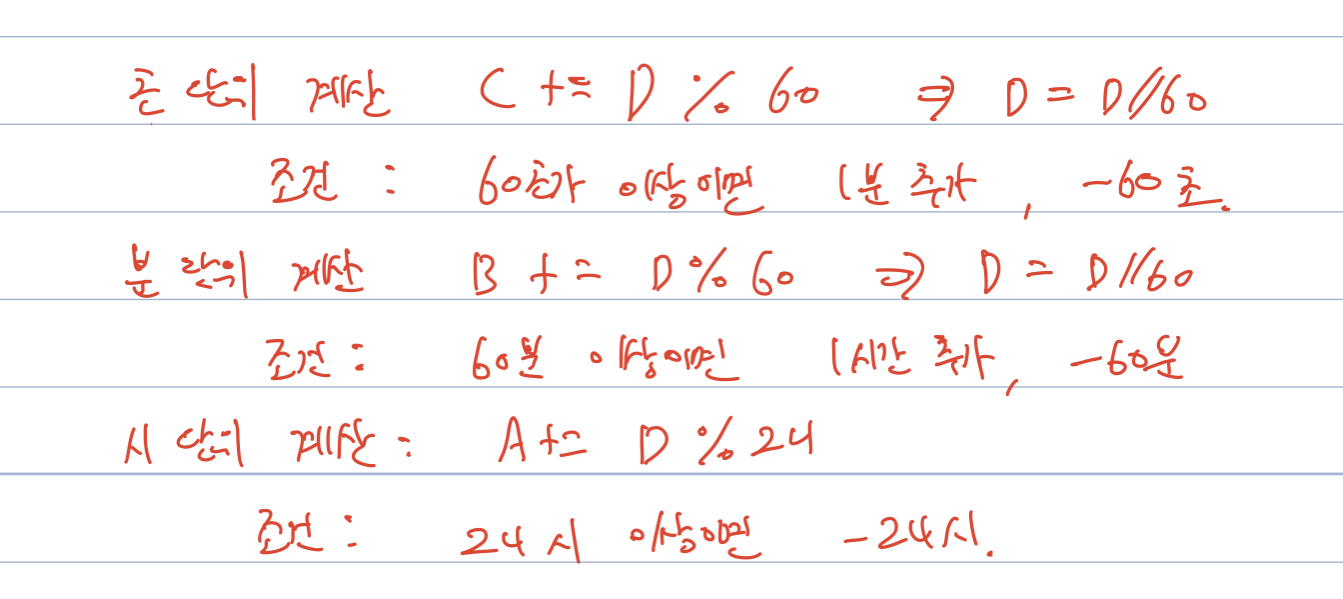 초 단위 계산 C += D % 60 ⇒ D = D//60
조건 : 60초가 이상이면 1분 추가, -60초.
분 단위 계산 B += D % 60 ⇒ D = D//60
조건 : 60분 이상이면 1시간 추가, -60분
시 단위 계산 : A += D % 24
조건 : 24시 이상이면 -24시.